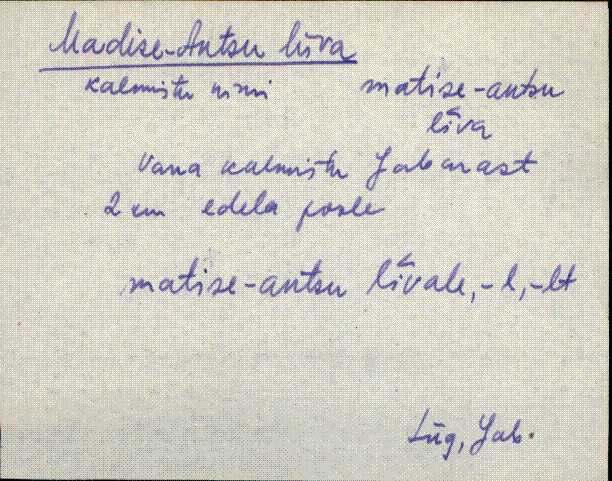 Madise-Antsu liiva
kalmistu nimi matise-antsu
līva
Vana kalmistu Jabarast
2 km edela poole
matise-antsu līvale, -l, -lt
Lüg, Jab.